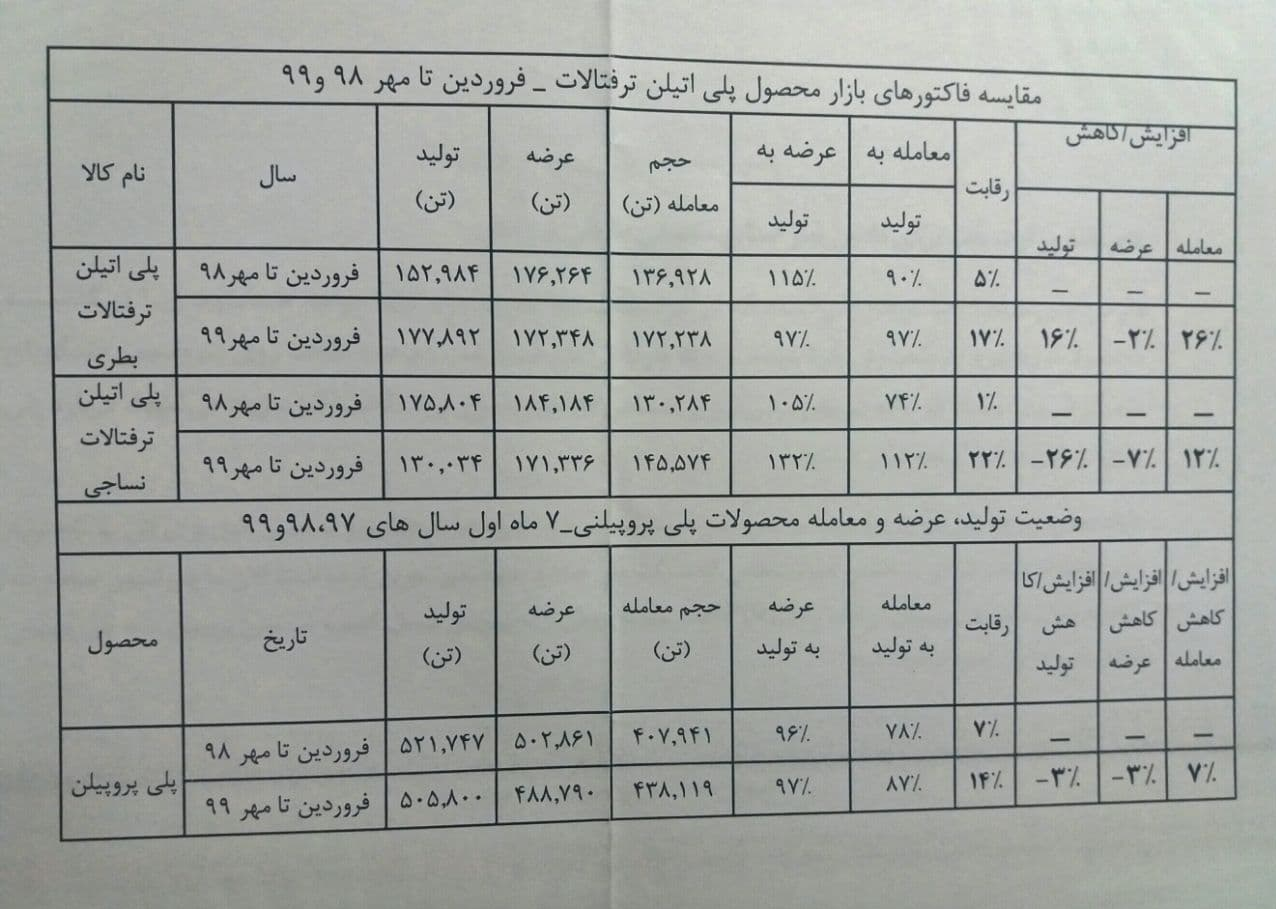 مقایسه فاکتورهای بازار محصول پلی اتیلن ترفتالات _ فروردین تا مهر ۹۸ و۹۹
نام کالا سال تولید (تن) عرضه (تن) حجم معامله (تن) عرضه به تولید معامله به تولید رقابت افزایش/کاهش تولید عرضه معامله
پلی اتیلن ترفتالات بطری
فروردین تا مهر۹۸ ۱۵۲,۹۸۴ ۱۷۶,۲۶۴ ۱۳۶,۹۲۸ ۱۱۵٪ ۹۰٪ ۵٪ _ _ _
فروردین تا مهر۹۹ ۱۷۷,۸۹۲ ۱۷۲,۳۴۸ ۱۷۲,۲۳۸ ۹۷٪ ۹۷٪ ۱۷٪ ۱۶٪ -۲٪ ۲۶٪
پلی اتیلن ترفتالات نساجی
فروردین تا مهر۹۸ ۱۷۵,۸۰۴ ۱۸۴,۱۸۴ ۱۳۰,۲۸۴ ۱۰۵٪ ۷۴٪ ۱٪ _ _ _
فروردین تا مهر۹۹ ۱۳۰,۰۳۴ ۱۷۱,۳۳۶ ۱۴۵,۵۷۴ ۱۳۲٪ ۱۱۲٪ ۲۲٪ -۲۶٪ -۷٪ ۱۲٪
وضعیت تولید، عرضه و معامله محصولات پلی پروپیلنی_۷ ماه اول سال های ۹۸،۹۷و۹۹
محصول تاریخ تولید (تن) عرضه (تن) حجم معامله (تن) عرضه به تولید معامله به تولید رقابت افزایش/کا هش تولید افزایش/ کاهش عرضه افزایش/ کاهش معامله
پلی پروپیلن
فروردین تا مهر ۹۸ ۵۲۱,۷۴۷ ۵۰۲,۸۶۱ ۴۰۷,۹۴۱ ۹۶٪ ۷۸٪ ۷٪ _ _ _
فروردین تا مهر ۹۹ ۵۰۵,۸۰۰ ۴۸۸,۷۹۰ ۴۳۸,۱۱۹ ۹۷٪ ۸۷٪ ۱۴٪ -۳٪ -۳٪ ۷٪